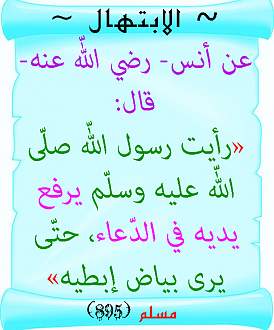 ~ الابتهال ~
عن أنس- رضي الله عنه-
قال:
«رأيت رسول الله صلّى
الله عليه وسلّم يرفع
يديه في الدّعاء، حتّى
يرى بياض إبطيه»
مسلم (895)